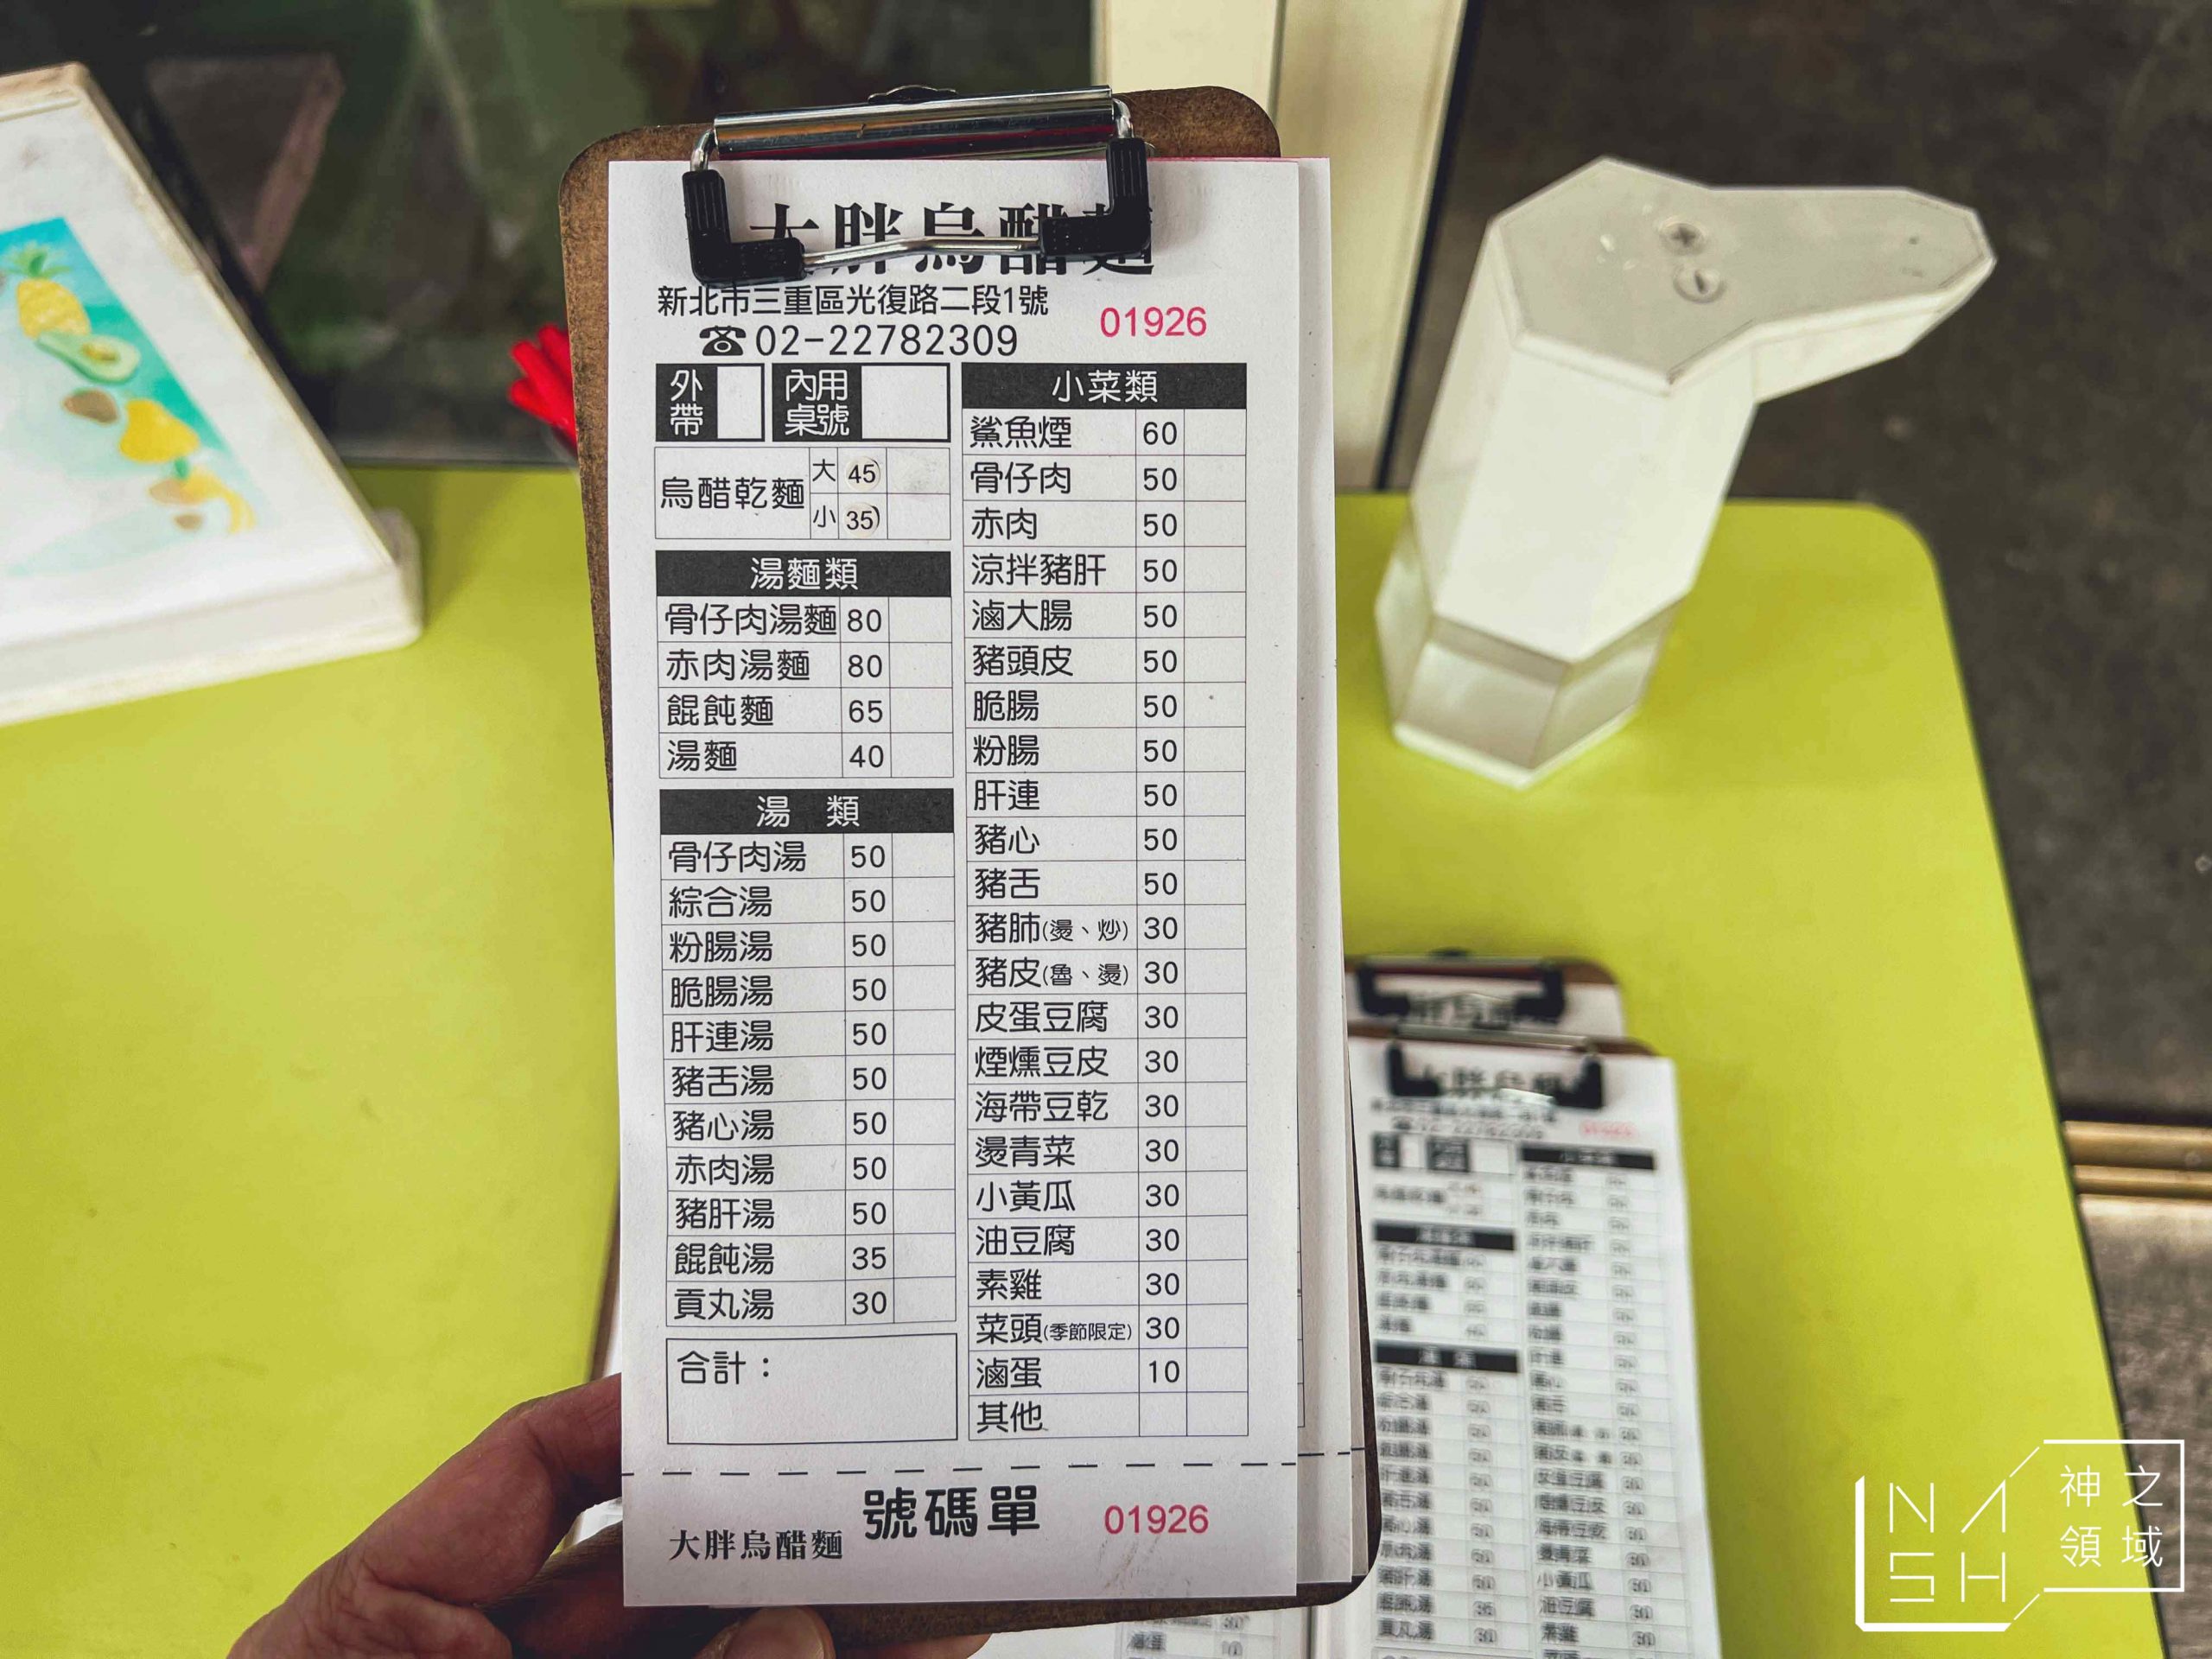 大胖烏醋麵
新北市三重區光復路二段1號
☎02-22782309
01926
外帶
內用桌號
烏醋乾麵 大 45
小 35
湯麵類
骨仔肉湯麵 80
赤肉湯麵 80
餛飩麵 65
湯麵 40
湯 類
骨仔肉湯 50
綜合湯 50
粉腸湯 50
脆腸湯 50
肝連湯 50
豬舌湯 50
豬心湯 50
赤肉湯 50
豬肝湯 50
餛飩湯 35
貢丸湯 30
合計：
小菜類
鯊魚煙 60
骨仔肉 50
赤肉 50
涼拌豬肝 50
滷大腸 50
豬頭皮 50
脆腸 50
粉腸 50
肝連 50
豬心 50
豬舌 50
豬肺(燙、炒) 30
豬皮(魯、燙) 30
皮蛋豆腐 30
煙燻豆皮 30
海帶豆乾 30
燙青菜 30
小黃瓜 30
油豆腐 30
素雞 30
菜頭(季節限定) 30
滷蛋 10
其他
大胖烏醋麵 號碼單 01926
NASH
神之領域